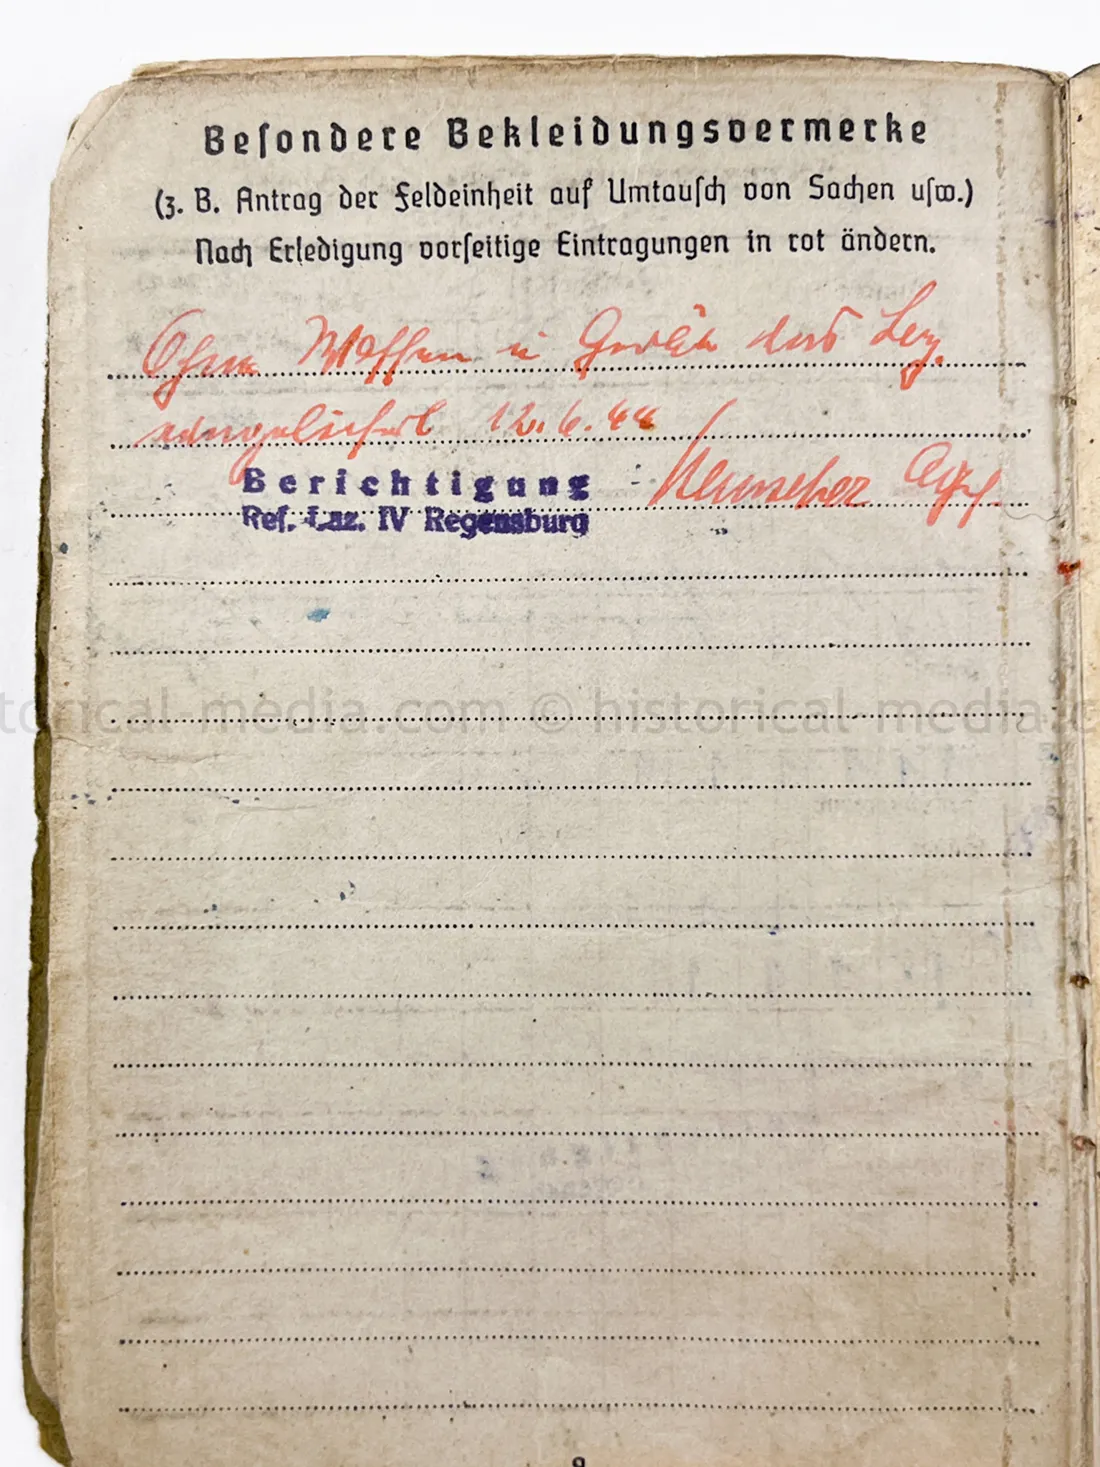 Beſondere Bekleidungsvermerke
(z. B. Antrag der Feldeinheit auf Umtauſch von Sachen uſw.)
Nach Erledigung vorſeitige Eintragungen in rot ändern.
Ohne Waffen u Geräte das Laz.
eingeliefert 12.6.44
Berichtigung
Reſ. Laz. IV Regensburg
torical-media.com © historical-media.c